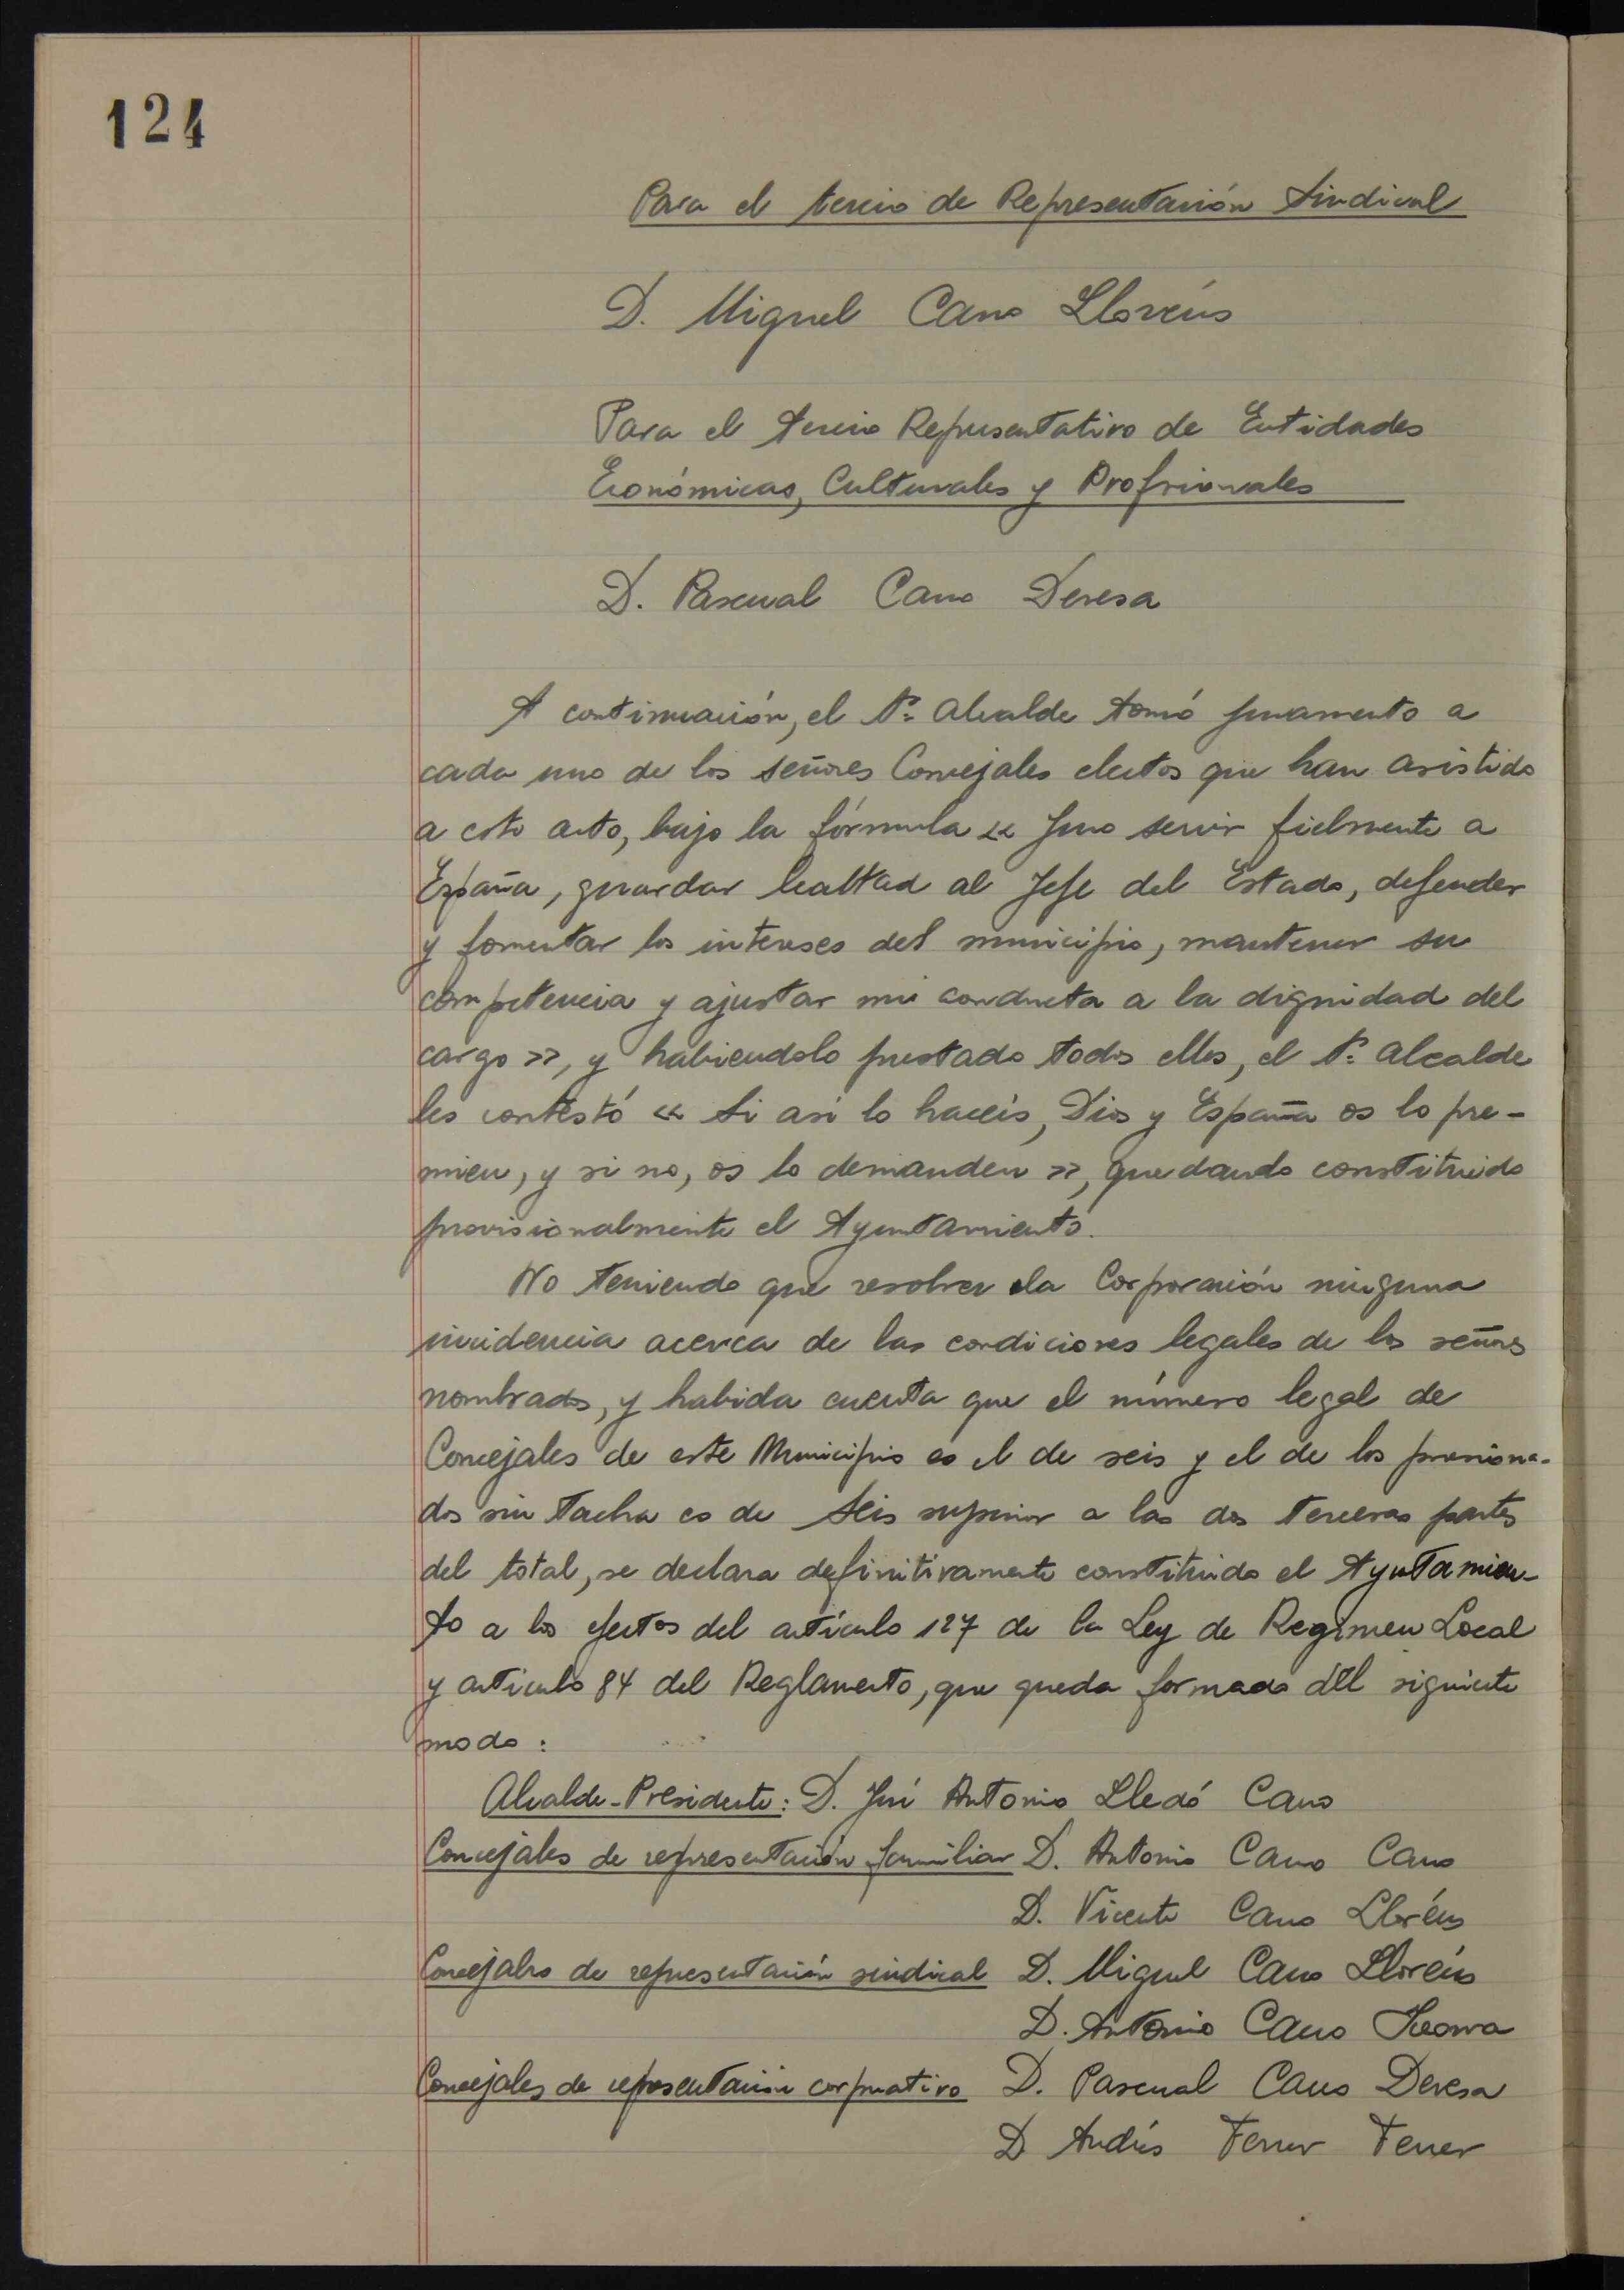 124
Para el tercio de Representación Sindical
D. Miguel Cano Lloréns
Para el tercio Representativo de Entidades
Económicas, Culturales y Profesionales
D. Pascual Cano Devesa
A continuación, el Sr. Alcalde tomó juramento a
cada uno de los señores Concejales electos que han asistido
a este acto, bajo la fórmula « Juro servir fielmente a
España, guardar lealtad al Jefe del Estado, defender
y fomentar los intereses del municipio, mantener su
competencia y ajustar mi conducta a la dignidad del
cargo », y habiendolo prestado todos ellos, el Sr. Alcalde
les contestó « Si así lo haceis, Dios y España os lo pre-
mien, y si no, os lo demanden », quedando constituido
provisionalmente el Ayuntamiento.
No teniendo que resolver la Corporación ninguna
incidencia acerca de las condiciones legales de los señores
nombrados, y habida cuenta que el número legal de
Concejales de este Municipio es el de seis y el de los posesiona-
dos sin tacha es de seis superior a las dos terceras partes
del total, se declara definitivamente constituido el Ayuntamien-
to a los efectos del artículo 127 de la Ley de Regimen Local
y articulo 84 del Reglamento, que queda formado del siguiente
modo :
Alcalde-Presidente: D. José Antonio Lledó Cano
Concejales de representación familiar D. Antonio Cano Cano
D. Vicente Cano Lloréns
Concejales de representación sindical D. Miguel Cano Lloréns
D. Antonio Cano
Concejales de representación corporativo D. Pascual Cano Devesa
D Andrés Ferrer Ferrer